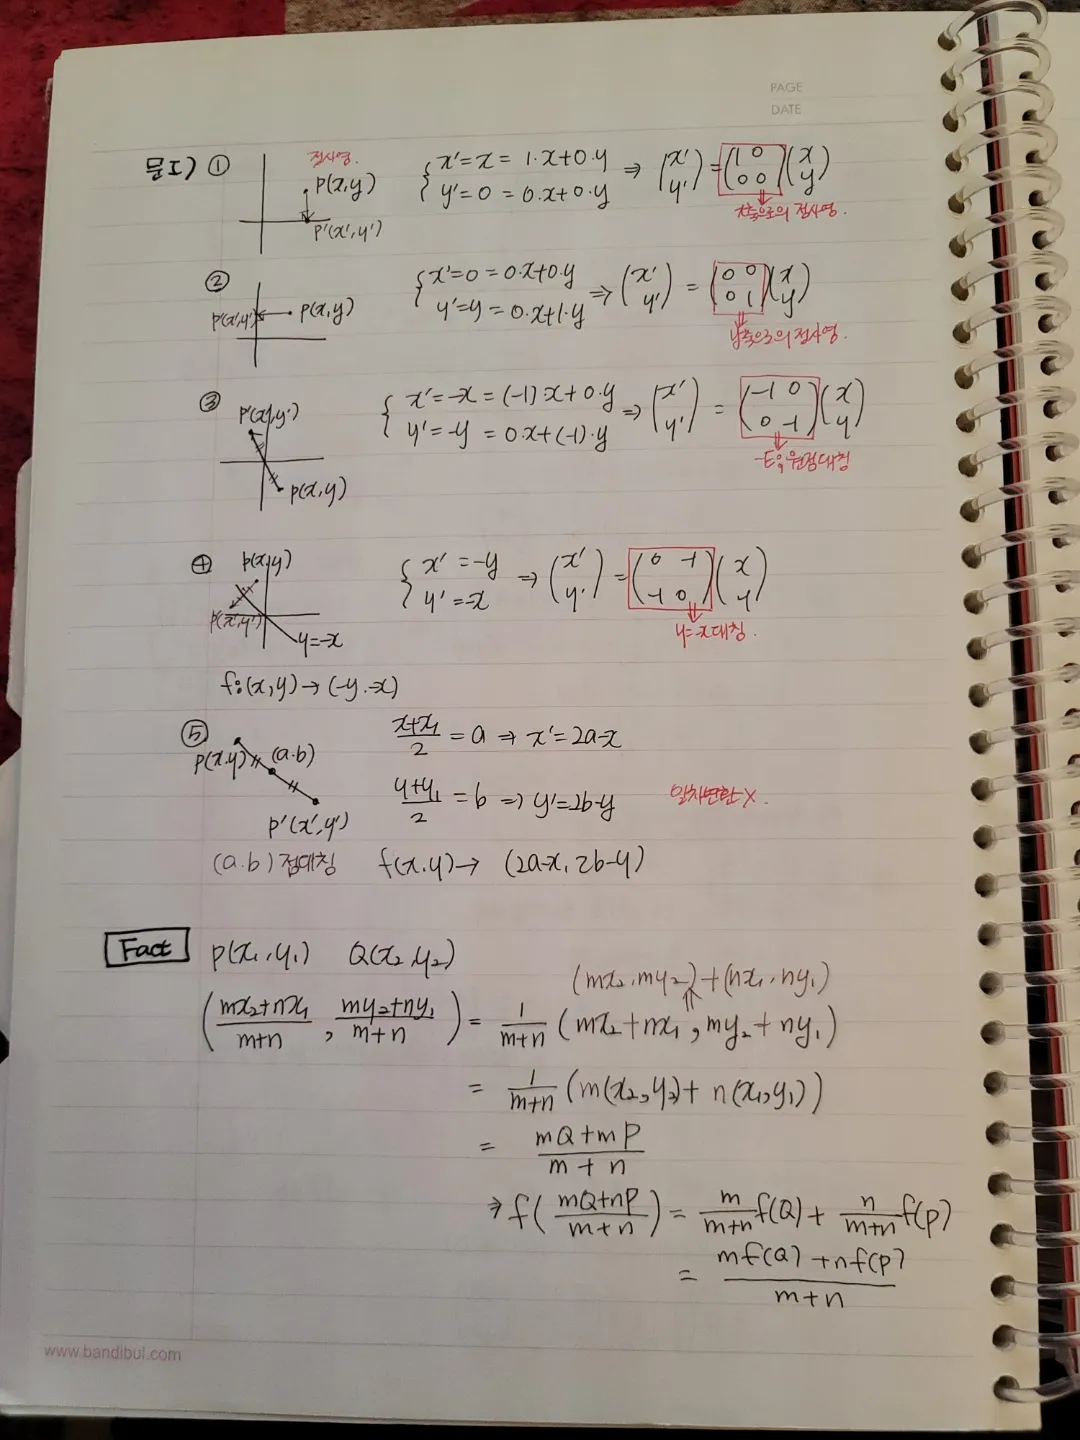 PAGE
DATE
문1) ① 정사영. P(x,y) P'(x',y') { x'=x = 1·x+0·y y'=0 = 0·x+0·y ⇒ (x' y') = (1 0 0 0)(x y)
x축으로의 정사영.
② P'(x',y') P(x,y) { x'=0 = 0·x+0·y y'=y = 0·x+1·y ⇒ (x' y') = (0 0 0 1)(x y)
y축으로의 정사영.
③ P'(x',y') P(x,y) { x'=-x = (-1)·x+0·y y'=-y = 0·x+(-1)·y ⇒ (x' y') = (-1 0 0 -1)(x y)
-E; 원점대칭
④ P(x,y) P'(x',y') y=-x { x'=-y y'=-x ⇒ (x' y') = (0 -1 -1 0)(x y)
y=-x대칭.
f:(x,y)→(-y,-x)
⑤ P(x,y) (a·b) P'(x',y')
x+x₁/2 = a ⇒ x'=2a-x
y+y₁/2 = b ⇒ y'=2b-y 일차변환 X.
(a·b) 점대칭 f(x,y)→ (2a-x, 2b-y)
Fact P(x₁,y₁) Q(x₂,y₂)
(mx₂,my₂)+(nx₁,ny₁)
(mx₂+nx₁/m+n, my₂+ny₁/m+n) = 1/m+n (mx₂+nx₁, my₂+ny₁)
= 1/m+n (m(x₂,y₂)+n(x₁,y₁))
= mQ+mP/m+n
⇒ f(mQ+nP/m+n) = m/m+n f(Q) + n/m+n f(P)
= mf(Q)+nf(P)/m+n
www.bandibul.com